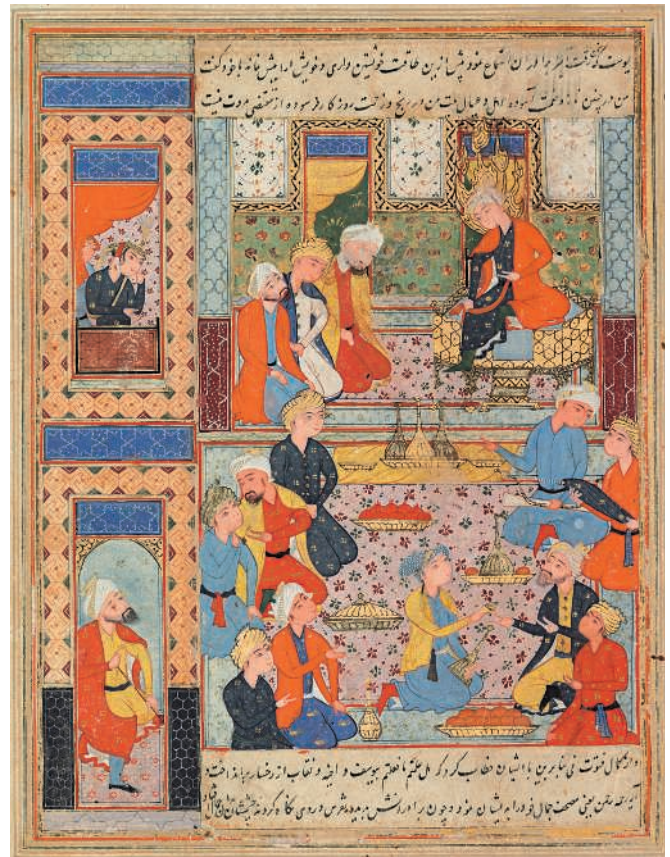 یوسف برادران استماع نمود پیش ازین طاقت خویشتن داری و خویش نماند با خود گفت
من در چنین ناز و نعمت آسوده و اهل و عیال من در رنج و زحمت روزگار فرسوده از مقتضی مروت نیست
و از کمال فتوت نی بنابرین با ایشان خطاب کرد که هل علمتم ما فعلتم بیوسف و اخیه و نقاب از رخسار برانداخت و
یعنی مصحف جمال خود را به ایشان نمود و چون برادرانش در وی نگاه کردند